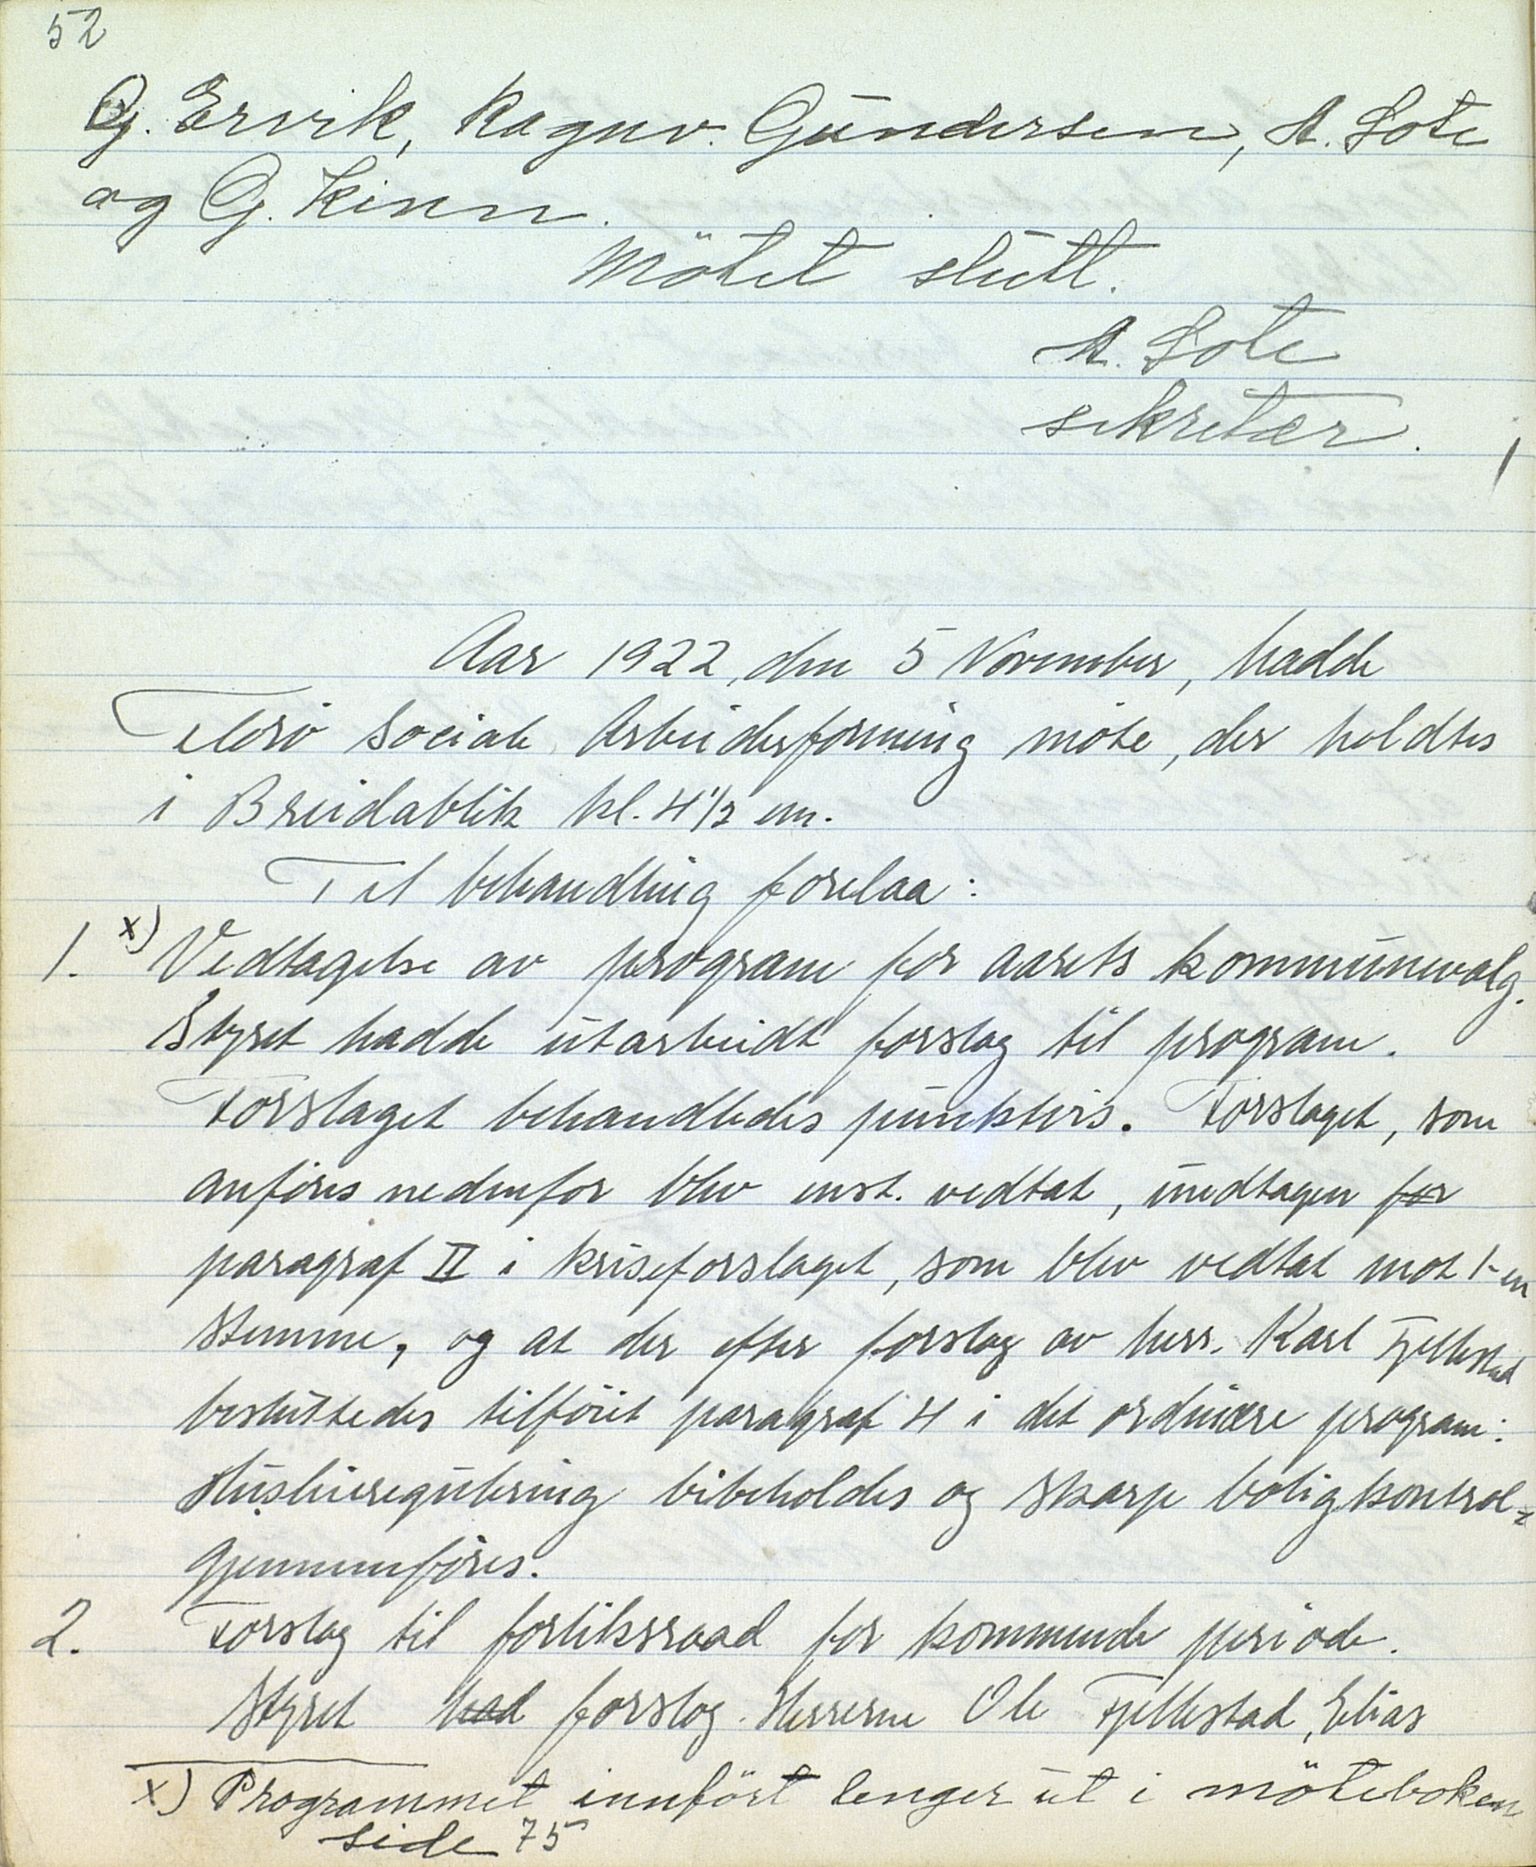 52
G. Ervik, Ragnv. Gundersen, A. Sote
og G. Kinn.
Mötet slutt.
A. Sote
sekretær.
Aar 1922, den 5 November, hadde
Florö Sociale Arbeiderforening möte, der holdtes
i Breidablik kl. 4 1/2 em.
Til behandling forelaa:
1. x) Vedtagelse av program for aarets kommunevalg.
Styret hadde utarbeidt forslag til program.
Forslaget behandledes punktvis. Forslaget, som
anføres nedenfor blev enst. vedtat, undtagen for
paragraf II i kriseforslaget, som blev vedtat mot 1 en
stemme, og at der efter forslag av herr. Karl Fjellestad
besluttedes tilføiet paragraf 4 i det ordinære program:
Husleieregulering bibeholdes og skarp boligkontrol
gjennemføres.
2. Forslag til forliksraad for kommende periode.
Styret had forslog Herrerne Ole Fjellestad, Elias
x) Programmet innført lenger ut i möteboken
side 75